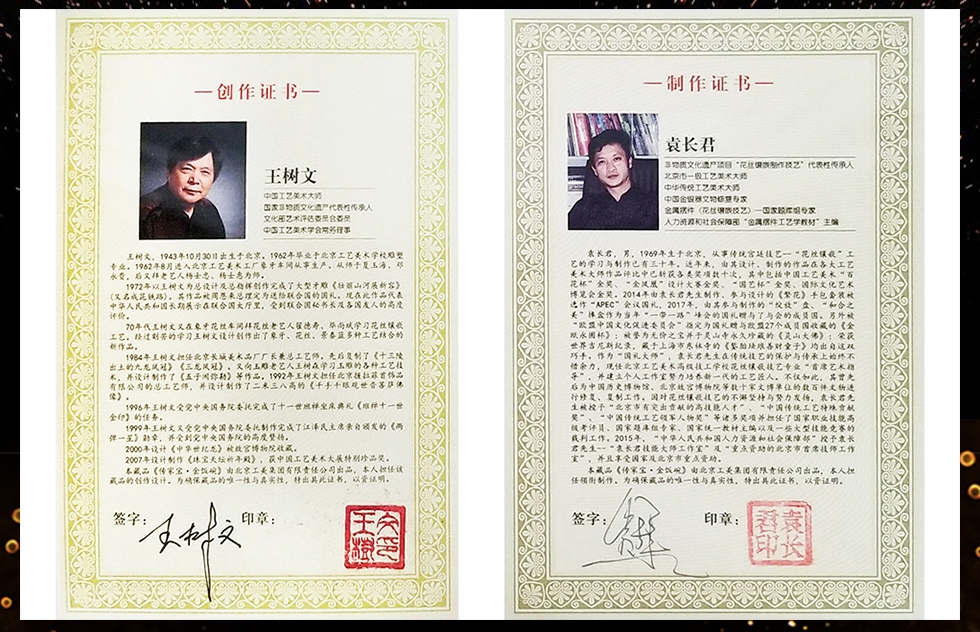 —创作证书—
王树文
中国工艺美术大师
国家非物质文化遗产代表性传承人
文化部艺术评估委员会委员
中国工艺美术学会常务理事
王树文，1943年10月30日出生于北京。1962年毕业于北京工艺美术学校雕塑
专业。1962年8月进入北京工艺美术工厂象牙车间从事生产。从师于夏玉海、邓
永贵，后又拜老艺人杨士忠、杨士惠为师。
1972年以王树文为总设计及总指挥创作完成了大型牙雕《壮丽山河展新容》
（又名成昆铁路），其作品被周恩来总理定为送给联合国的国礼，现在此作品代表
中华人民共和国长期展示在联合国大厅里，受到联合国秘书长及各国友人的高度
评价。
70年代王树文又在象牙花丝车间拜花丝老艺人翟德寿、毕尚斌学习花丝镶嵌
工艺，经过刻苦的学习王树文设计创作出了象牙、花丝、景泰蓝多种工艺结合的
新作品。
1984年王树文担任北京长城美术品厂厂长兼总工艺师。先后复制了《十三陵
出土的九龙凤冠》《三龙凤冠》。又向玉雕老艺人王树森学习玉雕的各种工艺技
术，并设计制作了《五子闹弥勒》等作品。1992年王树文担任北京捷拉菲首饰品
有限公司的总工艺师，并设计制作了二米三人高的《千手千眼观世音菩萨佛
像》。
1996年王树文受党中央国务院委托完成了十一世班禅坐床典礼《班禅十一世
金印》的任务。
1999年王树文受党中央国务院委托制作完成了江泽民主席亲自颁发的《两
弹一星》勋章，并受到党中央国务院的高度赞扬。
2000年设计《中华世纪龙》被故宫博物院收藏。
2007年设计制作《珠宝天坛祈年殿》，获中国工艺美术大展特别珍品奖。
本藏品《传家宝·金饭碗》由北京工美集团有限责任公司出品，本人担任该
藏品的创作设计。为确保藏品的唯一性与真实性，特出具此证书，以资证明。
签字：王树文 印章：
王树文印
—制作证书—
袁长君
非物质文化遗产项目“花丝镶嵌制作技艺”代表性传承人
北京市一级工艺美术大师
中华传统工艺美术大师
中国金银器文物修复专家
金属摆件（花丝镶嵌技艺）—国家题库组专家
人力资源和社会保障部“金属摆件工艺学教材”主编
袁长君，男，1969年生于北京，从事传统宫廷技艺--“花丝镶嵌”工
艺的学习与制作也有三十年。近年来，由其设计、制作的作品在各大工艺
美术大师作品评比中已斩获各类奖项数十次，其中包括中国工艺美术“百
花杯”金奖、“金凤凰”设计大赛金奖、“国艺杯”金奖、国际文化艺术
博览会金奖。2014年由袁长君先生制作、参与设计的《繁花》手包套装被
选作“APEC”会议国礼，2017年，由其参与制作的“
美”捧盒作为当年“一带一路”峰会的国礼赠与了与会的成员国。另外被
“欧盟中国文化促进委员会”指定为国礼赠与欧盟27个成员国收藏的《金
瓯永固杯》；被誉为无价之宝并于灵山寺永久珍藏的《灵山大佛》；荣获
世界吉尼斯纪录，藏于上海市
巧手。作为“国礼大师”，袁长君先生在传统技艺的保护与传承上始终不
惜余力，现任北京工艺美术高级技工学校花丝镶嵌技艺专业“首席艺术指
导”，并建立个人工作室努力培养新一代的工艺匠人。不仅如此，其曾先
后为中国历史博物馆、北京故宫博物院等数十家文博单位的数百件文物进
行修复、复制工作。因对花丝镶嵌技艺的不懈坚持与努力发扬，袁长君先
生被授予“北京市有突出贡献的高技能人才”、“中国传统工艺特殊贡献
奖”、“中国传统工艺领军人物奖”等诸多奖项并担任了国家职业技能高
级考评员、国家题库组专家、国家统一教材主编以及一些大型技能竞赛的
裁判工作。2015年，“中华人民共和国人力资源和社会保障部”授予袁长
君先生--“袁长君技能大师工作室”及“重点资助的北京市首席技师工作
室”，并且享受国家及北京市重点资助。
本藏品《传家宝·金饭碗》由北京工美集团有限责任公司出品，本人担
任领衔制作。为确保藏品的唯一性与真实性，特出具此证书，以资证明。
签字： 印章：
袁长君印